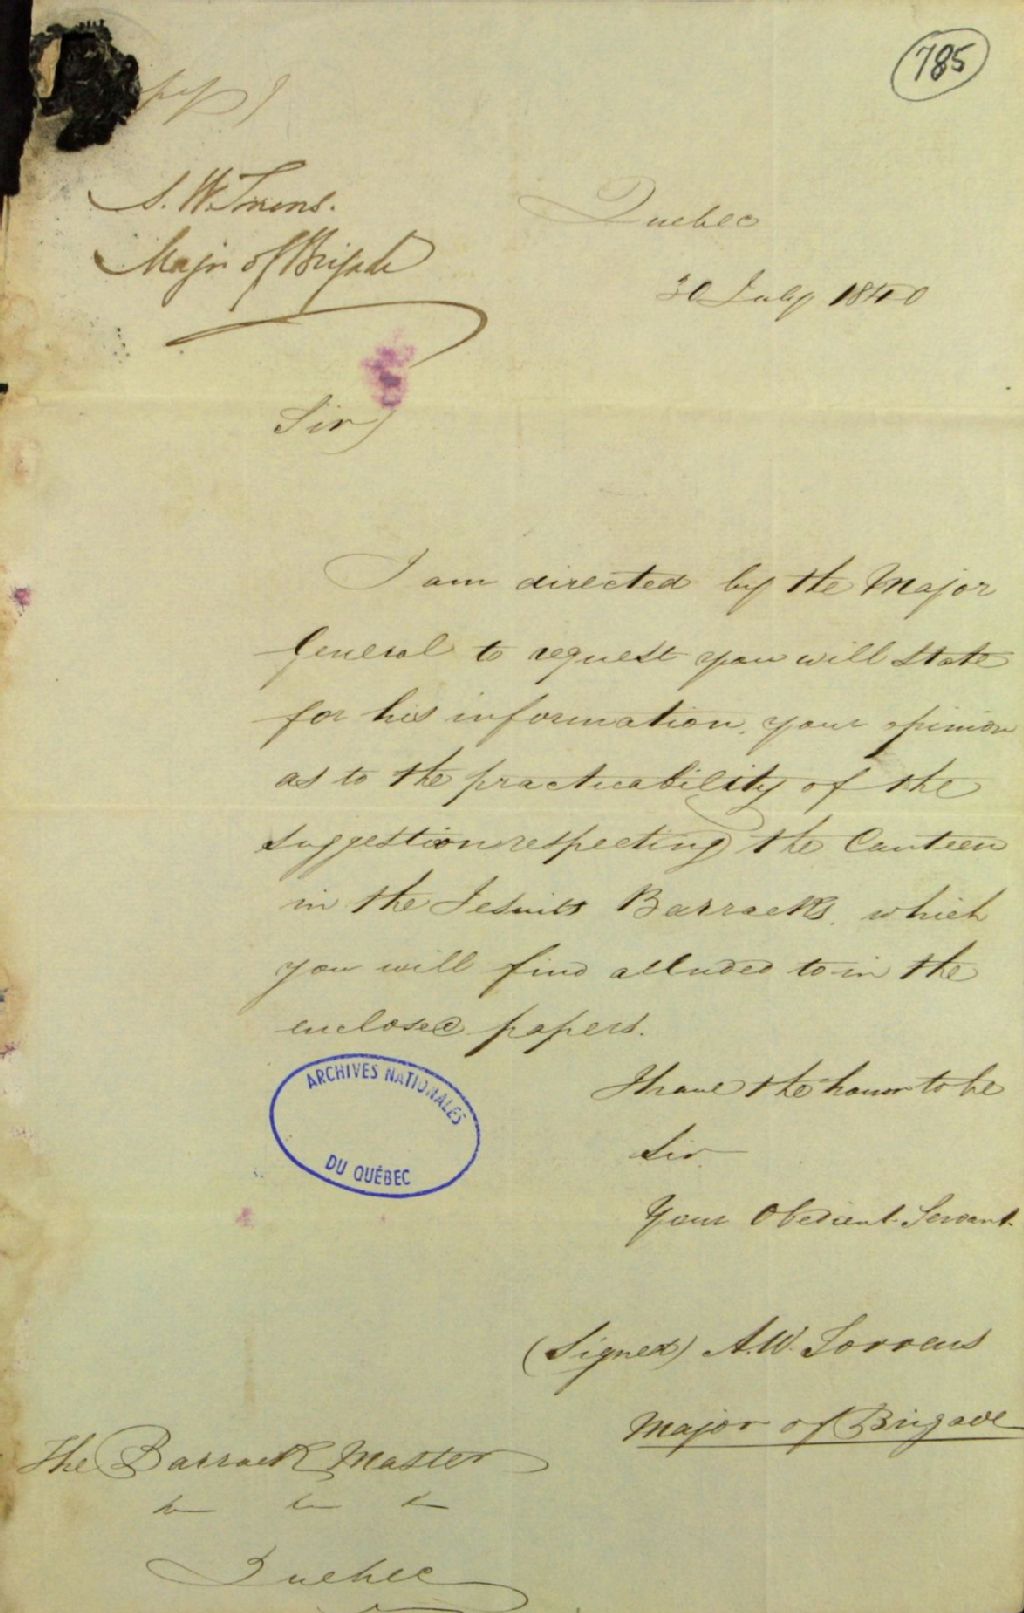 785
(Copy)
A. W. Torrens.
Major of Brigade
Quebec
30 July 1840
Sir
I am directed by the Major
General to request you will state
for his information, your opinion
as to the practicability of the
suggestion respecting the Canteen
in the Jesuits Barracks, which
you will find alluded to in the
enclosed papers.
I have the honor to be
Sir
Your Obedient Servant.
(Signed) A.W. Torrens
Major of Brigade
The Barrack Master
Quebec
ARCHIVES NATIONALES
DU QUÉBEC